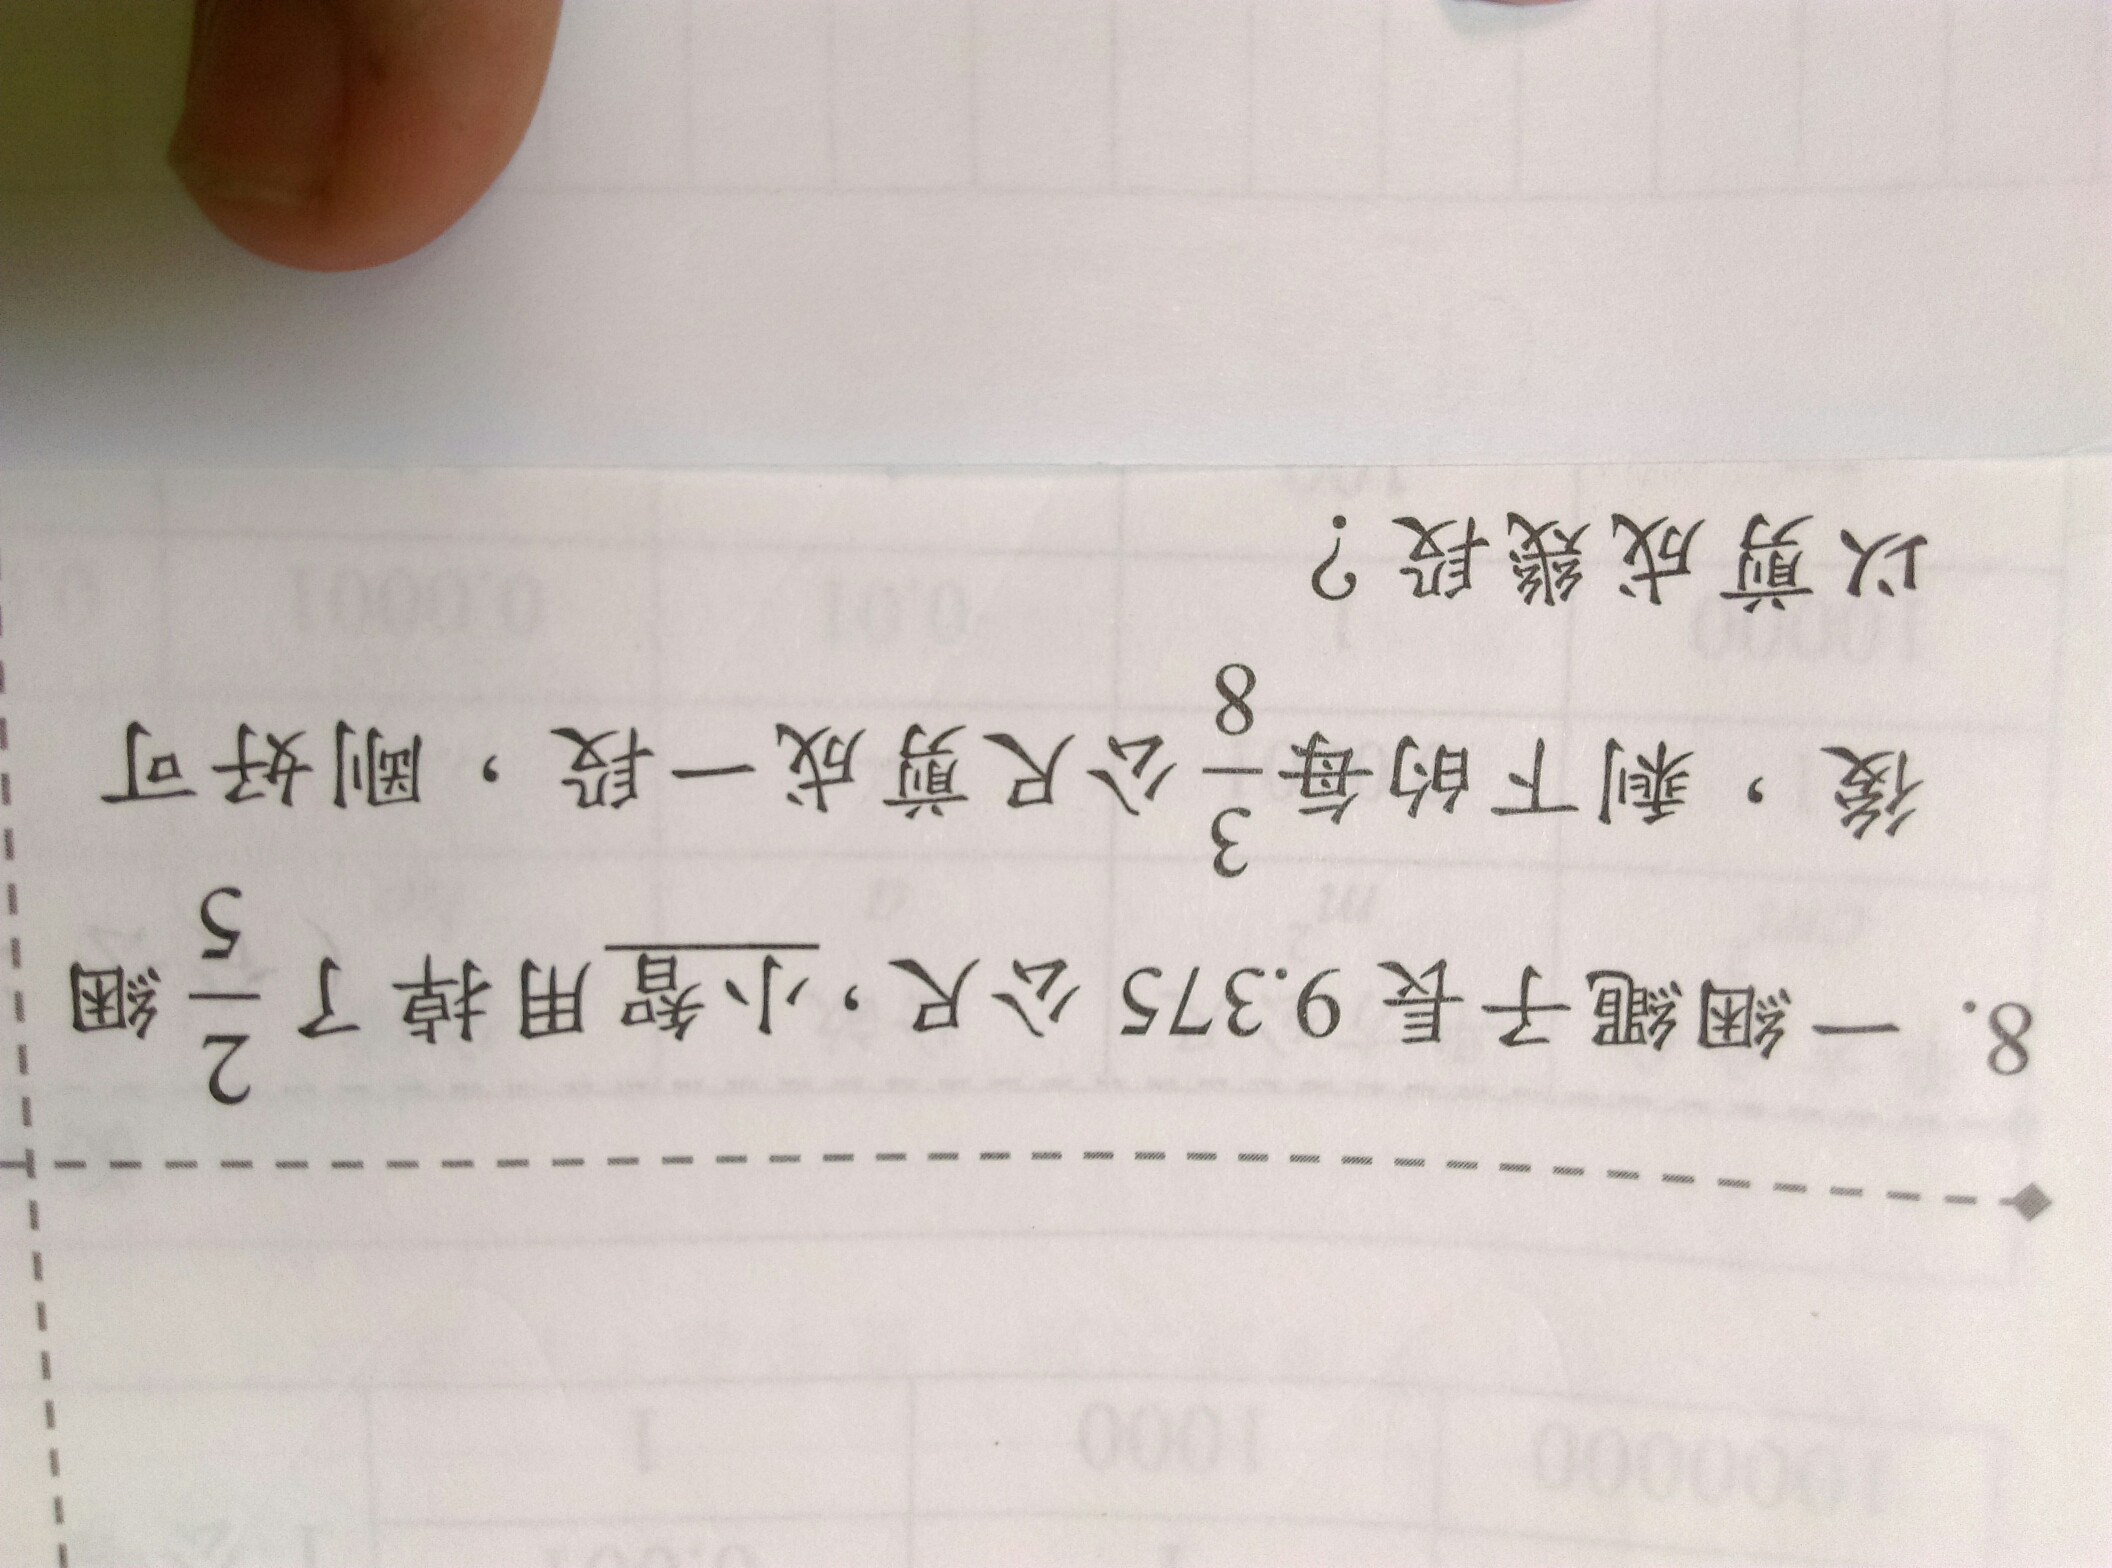 8. 一綑繩子長 9.375 公尺，小智用掉了 2/5 綑
後，剩下的每 3/8 公尺剪成一段，剛好可
以剪成幾段？